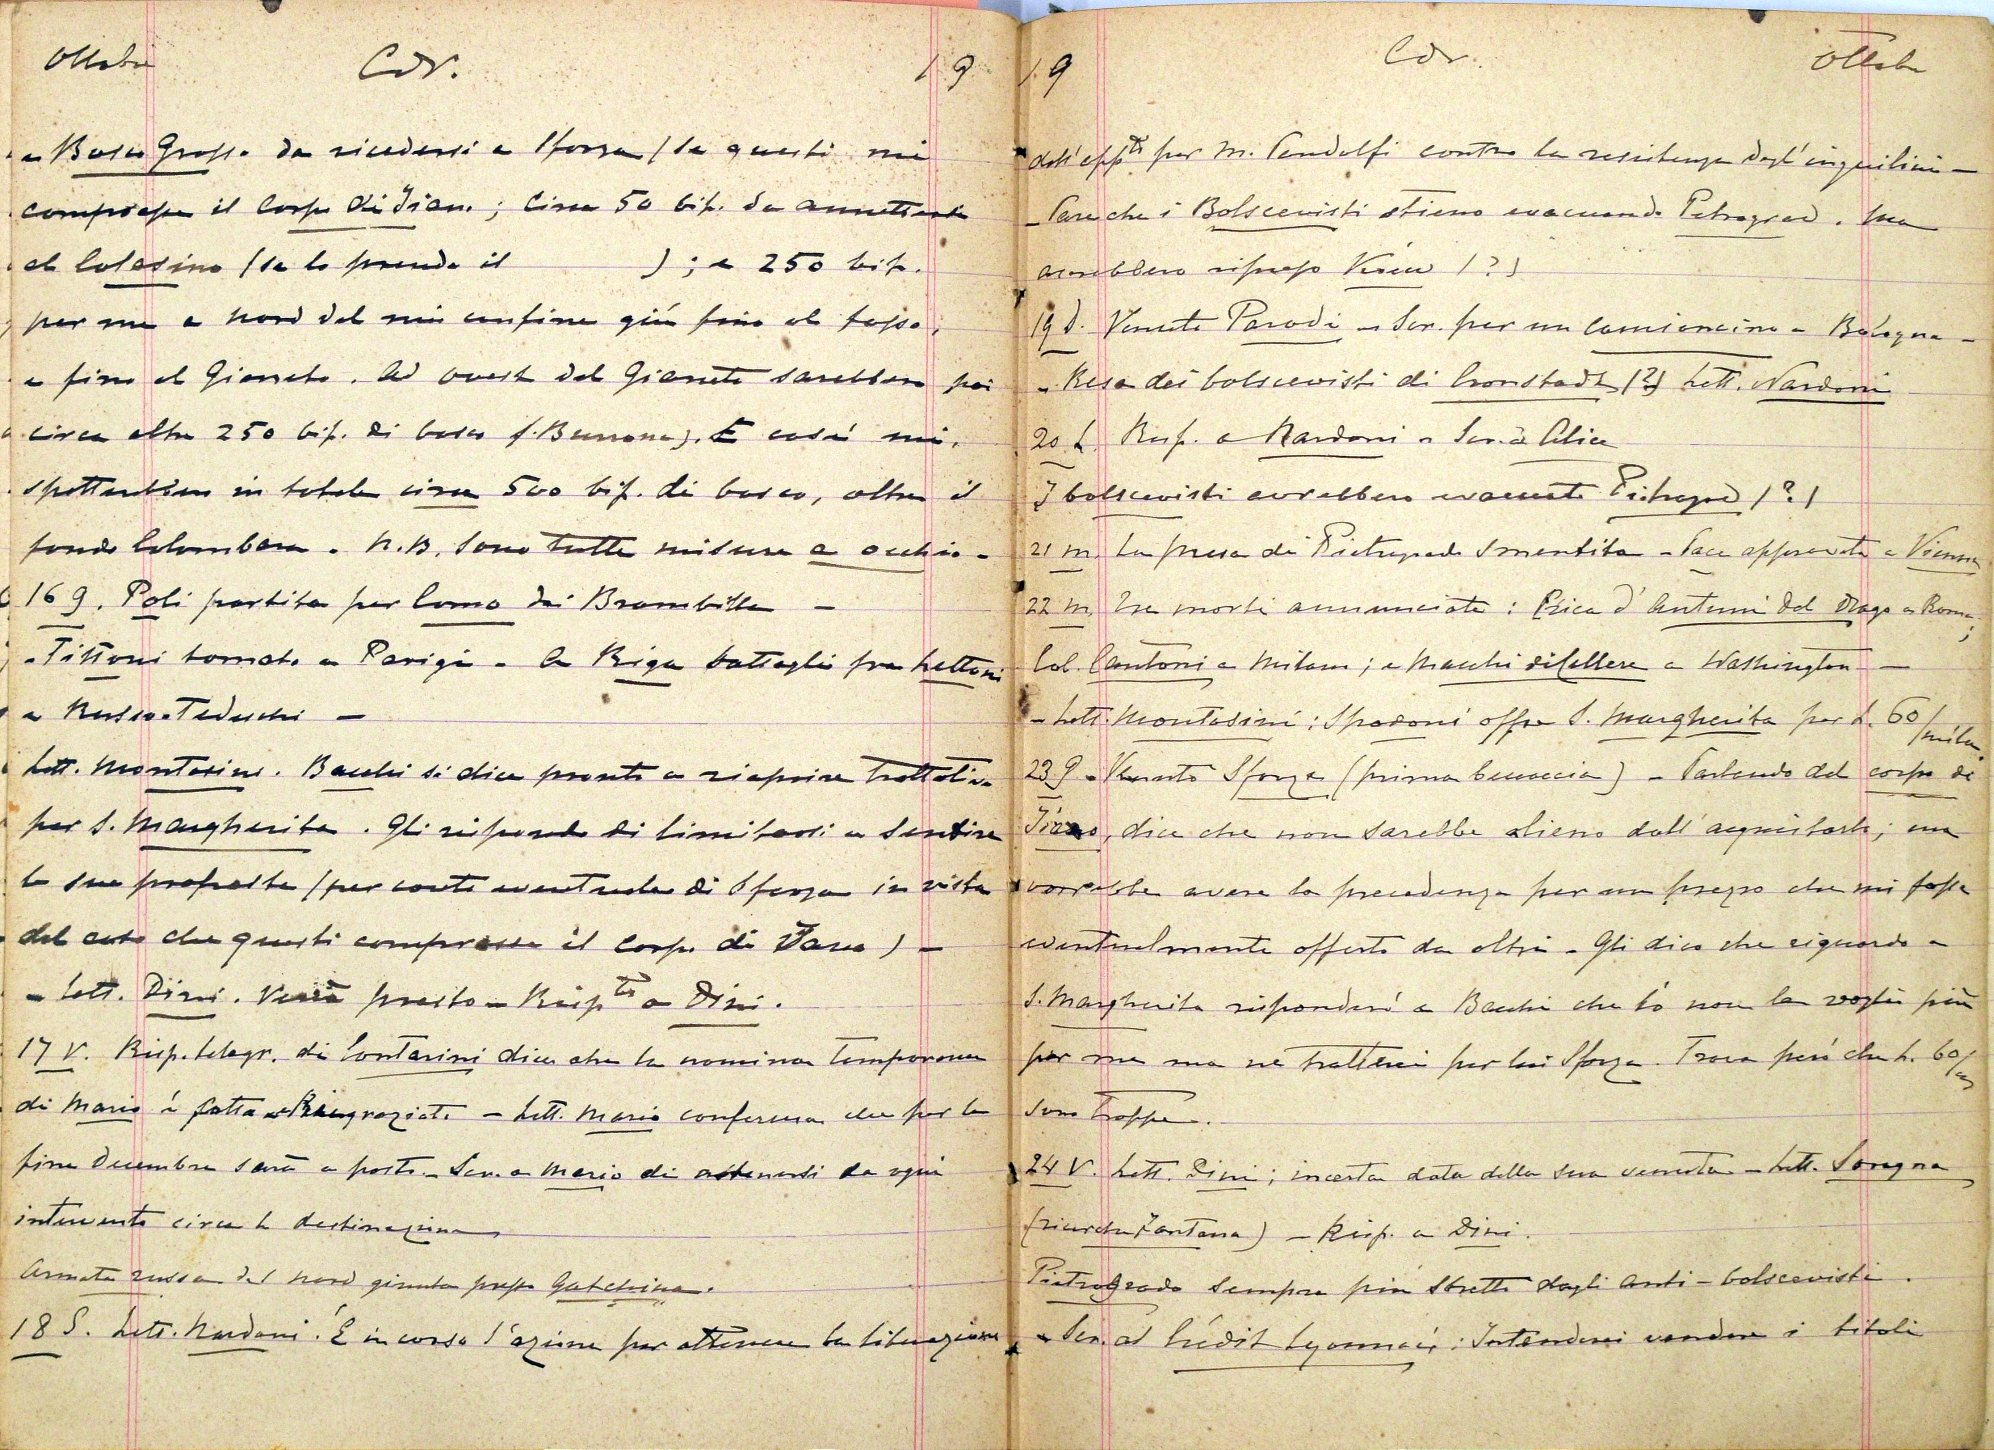 Ottobre Cor. 19
a Bosco Grosso da ricedersi a Sforza (se questi mi
comprasse il Corpo di Tiano; circa 50 bif. da annettersi
al Colosino (se lo prende il ); e 250 bif.
per me a nord del mio confine giù fino al fosso,
e fino al Gianneto. Ad ovest del Gianneto sarebbero poi
circa altre 250 bif. di bosco (. E così mi
spetterebbero in totale circa 500 bif. di bosco, oltre il
fondo Colombara. N.B. Sono tutte misure a occhio -
16 g. Poli partita per Como dai Brambilla -
- Tittoni tornato a Parigi - A Riga battaglia fra Lettoni
e Russo-Tedeschi -
Lett. Montasini. Bacchi si dice pronto a riaprire trattative
per S. Margherita. Gli rispondo di limitarsi a sentire
la sua proposta (per conto eventuale di Sforza in vista
del caso che questi comprasse il Corpo di Tiano) -
- Lett. Dini. Verrà presto - Risp.ta a Dini.
17 V. Risp. telegr. di Contarini dice che la nomina temporanea
di Mario è fatta - Ringraziato - Lett. Mario conferma che per la
fine Decembre sarà a posto - Scr. a Mario di astenersi da ogni
intervento circa la destinazione
Armata russa del nord giunta presso Gatchina.
18 S. Lett. Nardoni. È in corso l'azione per ottenere la liberazione
19 Cor. Ottobre
dell'app.to per M. Pandolfi contro la resistenza degl'inquilini -
- Pare che i Bolscevisti stieno evacuando Petrograd. Ma
avrebbero ripreso Kiew (?)
19 d. Venuto Parodi - Scr. per un camioncino a Bologna -
- Resa dei bolscevisti di Cronstadt (?) Lett. Nardoni
20 L. Risp. a Nardoni - Scr. a Alice
I bolscevisti avrebbero evacuato Pietrograd (?)
21 m. La presa di Pietrogrado smentita - Pace approvata a Vienna
22 m. Tre morti annunciate: Erica d'Antuni del Drago a Roma;
Col. Cantoni a Milano; e Macchi di Cellere a Washington -
- Lett. Montasini: Spadoni offre S. Margherita per L. 60/mila.
23 g. - Venuto Sforza (prima beccaccia) - Parlando del corpo di
Tiano, dice che non sarebbe alieno dall'acquistarlo; ma
vorrebbe avere la precedenza per un prezzo che mi fosse
eventualmente offerto da altri - Gli dico che riguardo a
S. Margherita risponderò a Bacchi che io non la voglio più
per me ma ne tratterei per lui Sforza. Trova però che L. 60/m
sono troppe.
24 V. Lett. Dini; incerta data della sua venuta - Lett. Soragna
(ricerche Fontana) - Risp. a Dini.
Pietrogrado sempre più stretto dagli anti-bolscevisti.
- Scr. al Crédit Lyonnais: Intenderei vendere i titoli